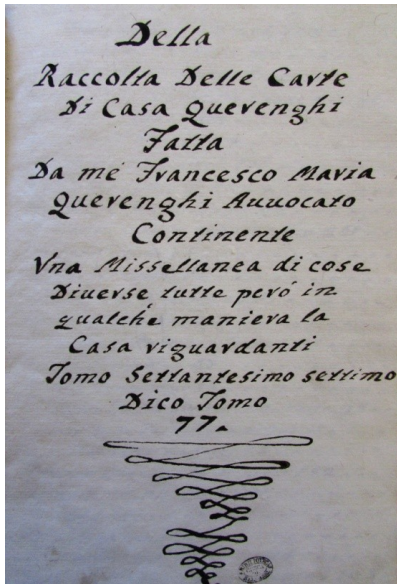 Della
Raccolta Delle Carte
Di Casa Querenghi
Fatta
Da mé Francesco Maria
Querenghi Auuocato
Continente
Vna Missellanea di cose
Diuerse, tutte peró in
qualche maniera la
Casa riguardanti
Tomo Settantesimo settimo
Dico Tomo
77.